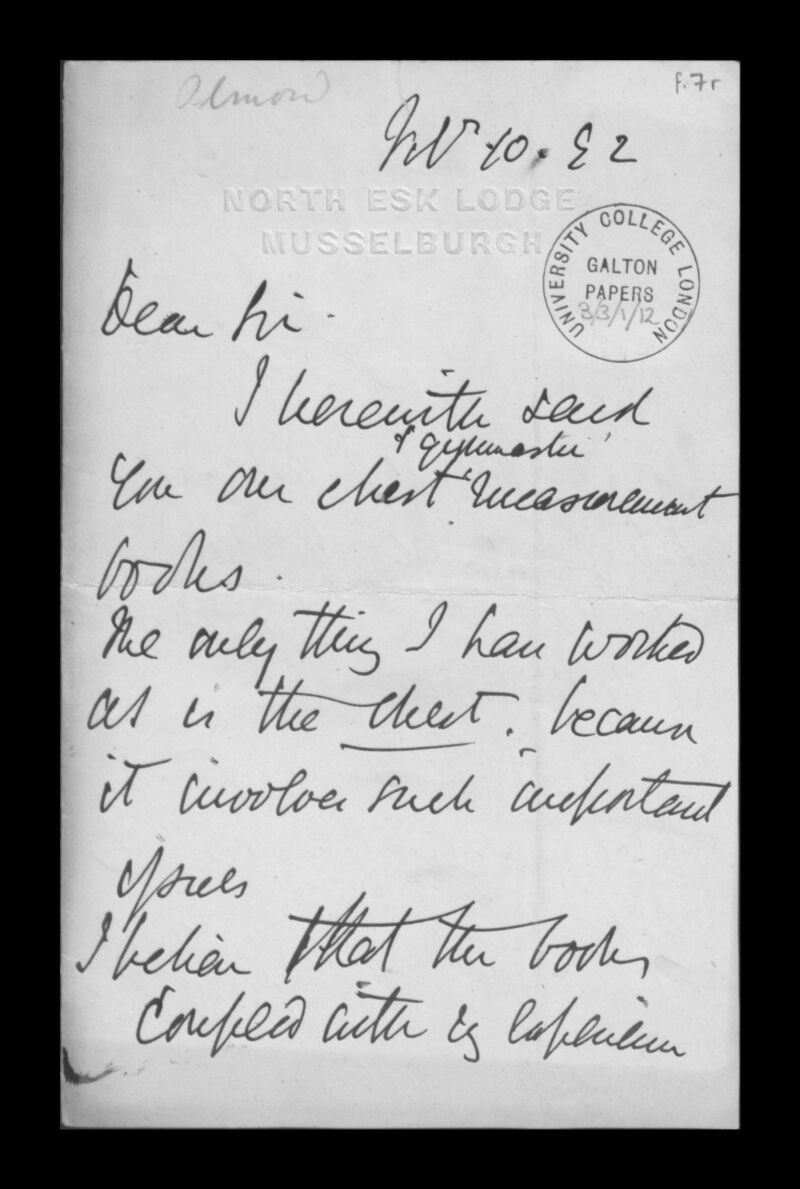 Almond
f.7r
Nov 10. 92
NORTH ESK LODGE
MUSSELBURGH
UNIVERSITY COLLEGE LONDON
GALTON
PAPERS
3/3/1/12
Dear Sir.
I herewith send
& gymnastic
you our chest measurement
books.
The only thing I have worked
at is the chest. because
it involves such important
issues
I believe that the books
Coupled with my experience